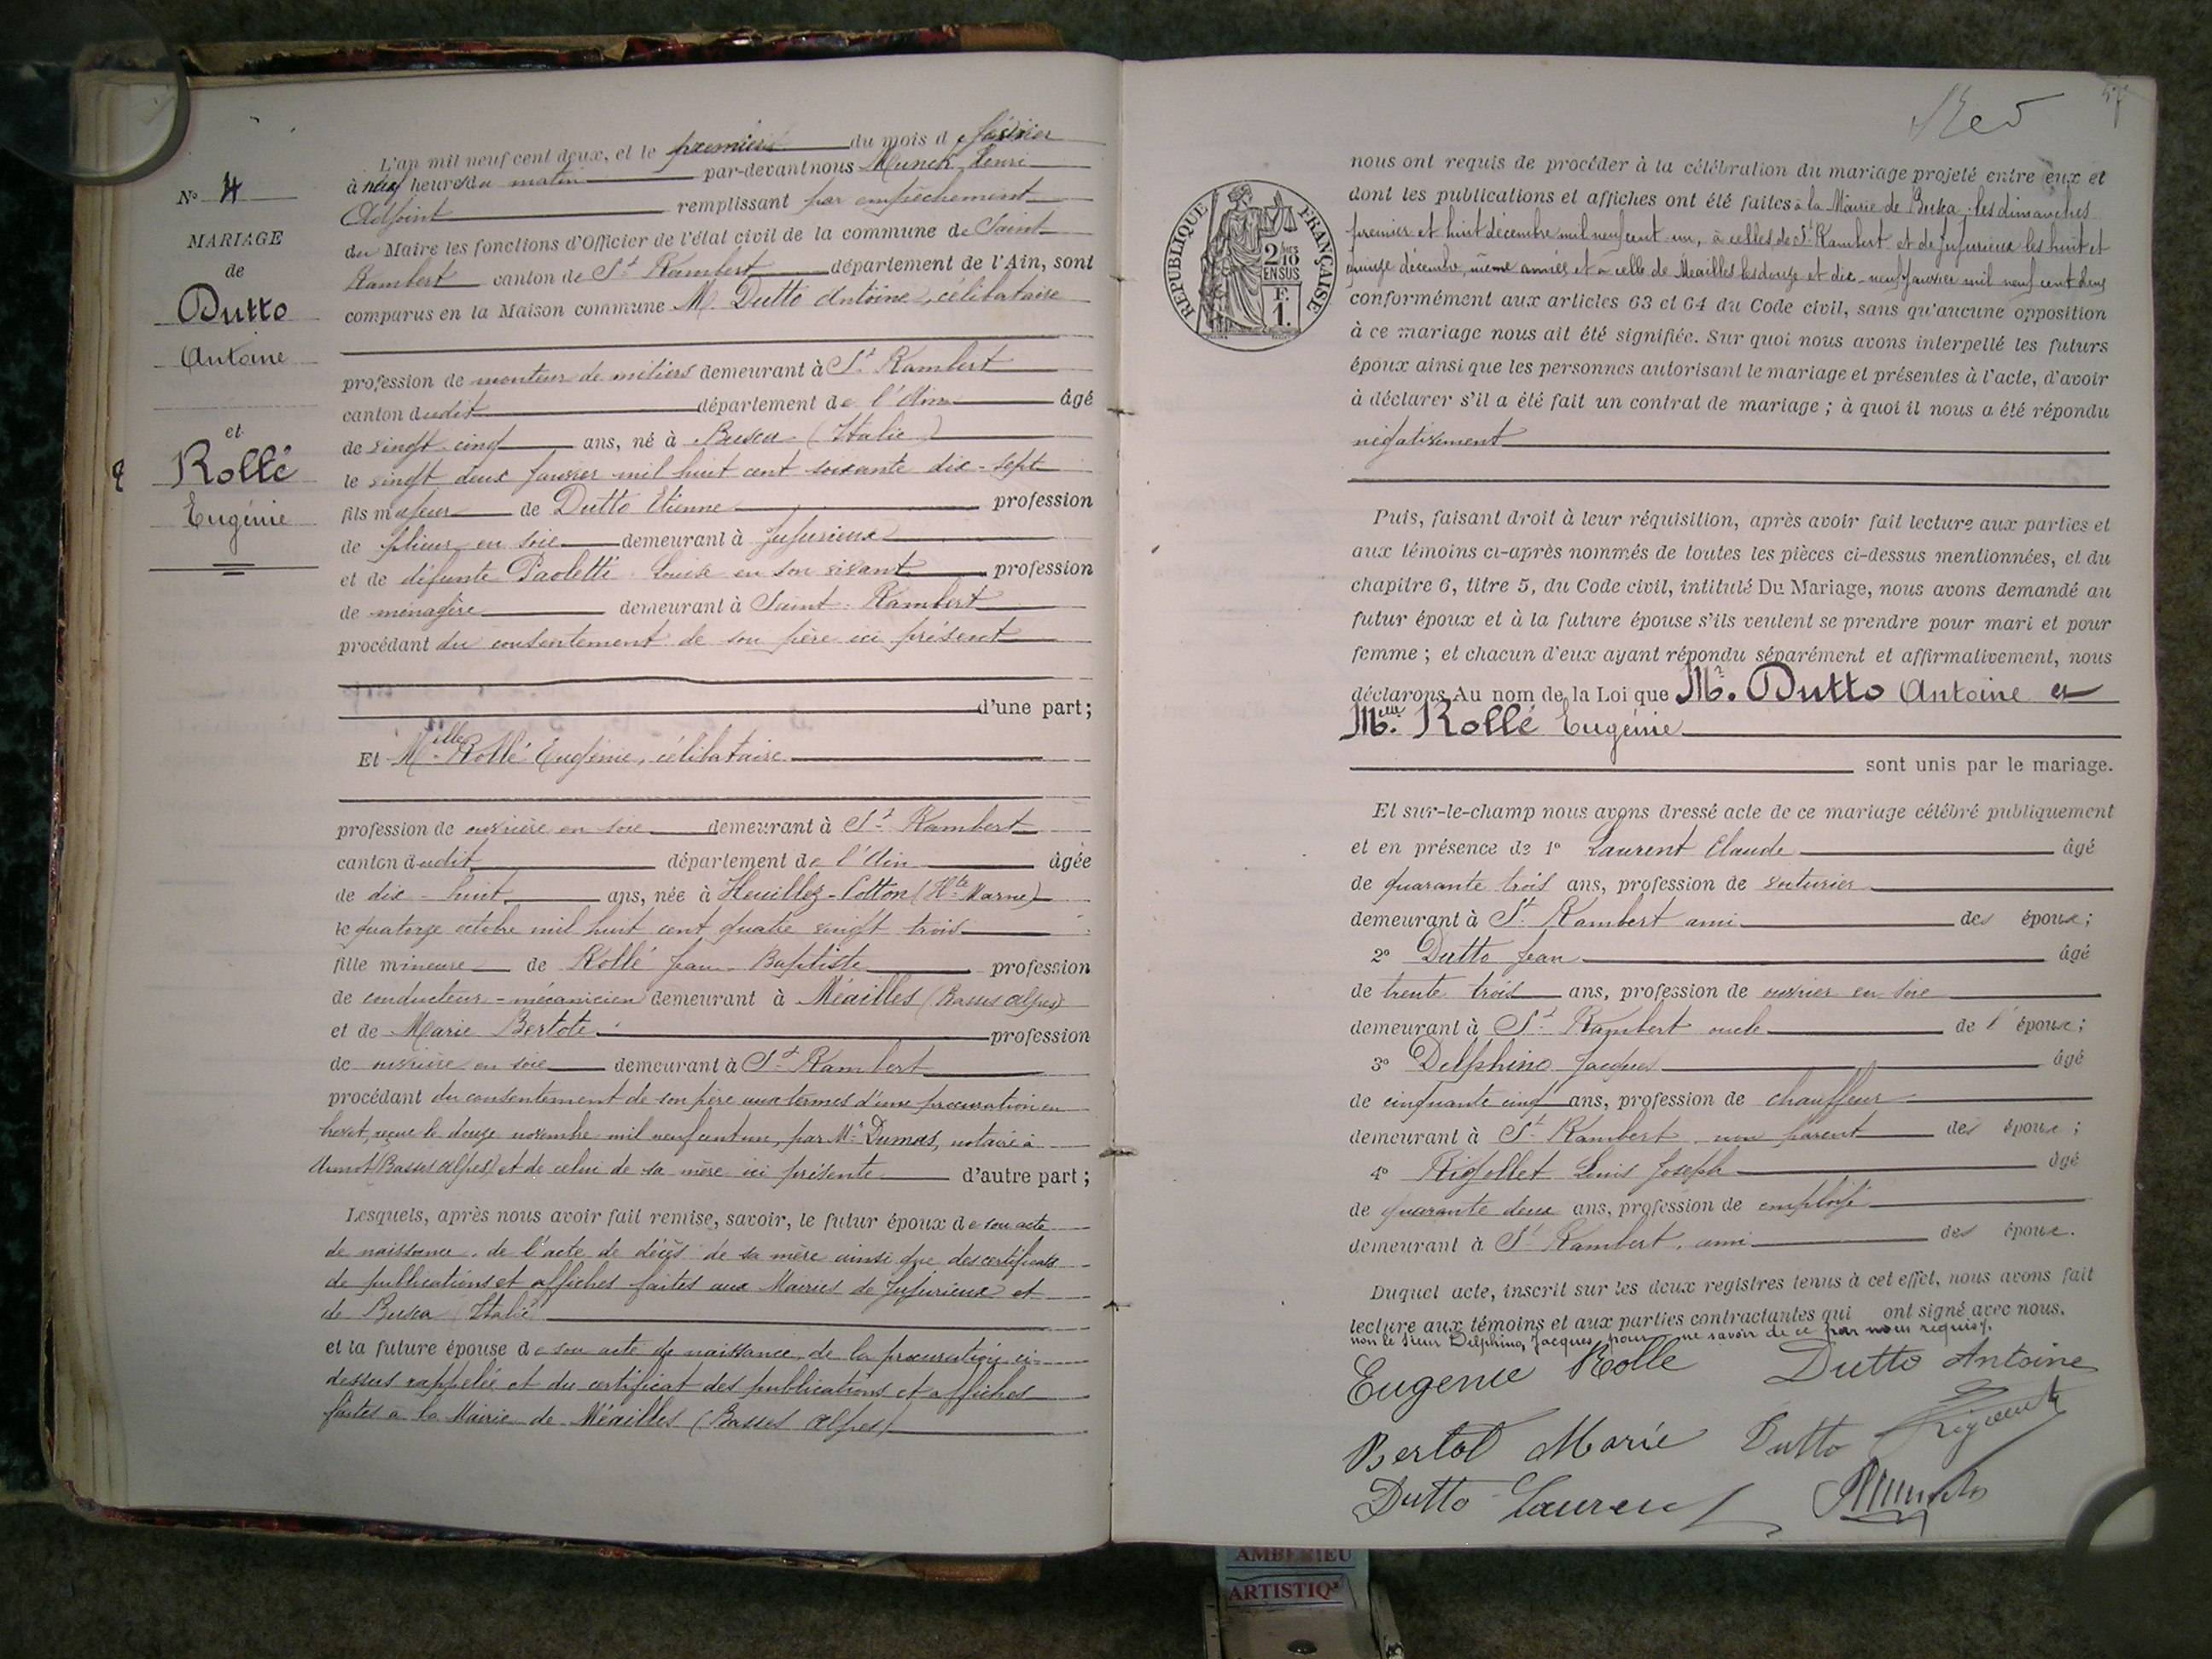 N° 4
MARIAGE
de
Dutto
Antoine
et
Rollé
Eugénie
L'an mil neuf cent deux, et le premier du mois de février
à neuf heures du matin par-devant nous Munch Henri
Adjoint remplissant par empêchement
du Maire les fonctions d'Officier de l'état civil de la commune de Saint
Rambert canton de St Rambert département de l'Ain, sont
comparus en la Maison commune M. Dutto Antoine, célibataire
profession de monteur de métiers demeurant à St Rambert
canton dudit département de l'Ain âgé
de vingt-cinq ans, né à Busca (Italie)
le vingt deux janvier mil huit cent soixante dix-sept
fils majeur de Dutto Etienne profession
de plieur en soie demeurant à Jujurieux
et de défunte Paoletti Louise en son vivant profession
de ménagère demeurant à Saint-Rambert
procédant du consentement de son père ici présent
d'une part;
Et Melle Rollé Eugénie, célibataire
profession de ouvrière en soie demeurant à St Rambert
canton dudit département de l'Ain âgée
de dix-huit ans, née à Heuilley-Cotton (Hte Marne)
le quatorze octobre mil huit cent quatre vingt trois
fille mineure de Rollé Jean-Baptiste profession
de conducteur-mécanicien demeurant à Méailles (Basses Alpes)
et de Marie Bertote profession
de ouvrière en soie demeurant à St Rambert
procédant du consentement de son père aux termes d'une procuration en
brevet reçue le douze novembre mil neuf cent un, par Me Dumas, notaire à
Annot (Basses Alpes) et de celui de sa mère ici présente d'autre part;
Lesquels, après nous avoir fait remise, savoir, le futur époux de son acte
de naissance, de l'acte de décès de sa mère ainsi que des certificats
de publications et affiches faites aux Mairies de Jujurieux et
de Busca (Italie)
et la future épouse de son acte de naissance, de la procuration ci-
dessus rappelée et du certificat des publications et affiches
faites à la Mairie de Méailles (Basses Alpes)
57
REPUBLIQUE FRANÇAISE
2/10
EN SUS
F.
1.
nous ont requis de procéder à la célébration du mariage projeté entre eux et
dont les publications et affiches ont été faites à la Mairie de Busca, les dimanches
premier et huit décembre mil neuf cent un, à celles de St Rambert et de Jujurieux les huit et
quinze décembre, même année et à celle de Méailles les douze et dix-neuf janvier mil neuf cent deux
conformément aux articles 63 et 64 du Code civil, sans qu'aucune opposition
à ce mariage nous ait été signifiée. Sur quoi nous avons interpellé les futurs
époux ainsi que les personnes autorisant le mariage et présentes à l'acte, d'avoir
à déclarer s'il a été fait un contrat de mariage; à quoi il nous a été répondu
négativement
Puis, faisant droit à leur réquisition, après avoir fait lecture aux parties et
aux témoins ci-après nommés de toutes les pièces ci-dessus mentionnées, et du
chapitre 6, titre 5, du Code civil, intitulé Du Mariage, nous avons demandé au
futur époux et à la future épouse s'ils veulent se prendre pour mari et pour
femme; et chacun d'eux ayant répondu séparément et affirmativement, nous
déclarons Au nom de la Loi que Mr. Dutto Antoine et
Melle. Rollé Eugénie
sont unis par le mariage.
Et sur-le-champ nous avons dressé acte de ce mariage célébré publiquement
et en présence de 1° Laurent Claude âgé
de quarante trois ans, profession de voiturier
demeurant à St Rambert ami des époux;
2° Dutto Jean âgé
de trente trois ans, profession de ouvrier en soie
demeurant à St Rambert oncle de l'époux;
3° Delphino Jacques âgé
de cinquante cinq ans, profession de chauffeur
demeurant à St Rambert, non parent des époux;
4° Rigollet Louis Joseph âgé
de quarante deux ans, profession de employé
demeurant à St Rambert, ami des époux.
Duquel acte, inscrit sur les deux registres tenus à cet effet, nous avons fait
lecture aux témoins et aux parties contractantes qui ont signé avec nous.
non le sieur Delphino, Jacques, pour ne savoir de ce par nous requis.
Eugenie Rolle Dutto Antoine
Bertot Marie Dutto
Dutto Laurent
AMBERIEU
ARTISTIQ